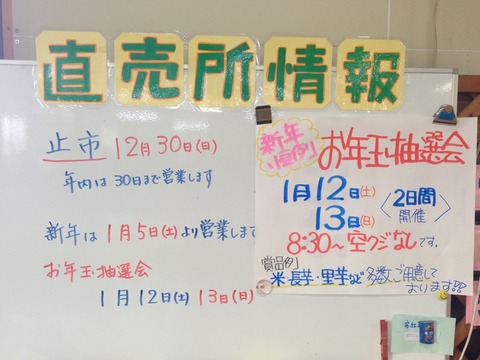 直売所情報
止市 12月30日(日)
年内は30日まで営業します
新年は1月5日(土)より営業しまて
お年玉抽選会
1月12日(土) 13日(日)
新年恒例!
お年玉抽選会
1月12日(土)
13日(日)
〈2日間開催〉
8:30〜空クジなしです。
賞品例
米・長芋・里芋など多数ご用意して
おります